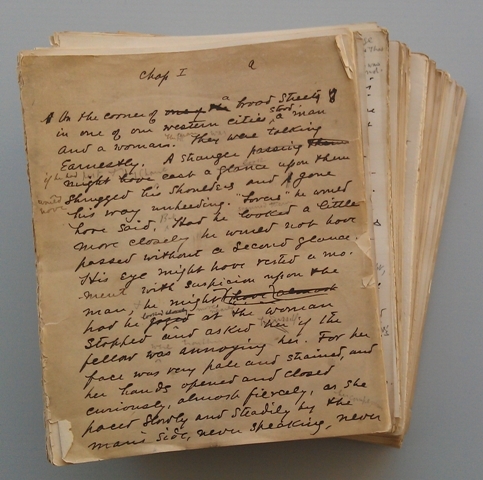 Chap I a
On the corner of a broad Street
in one of our western cities, stood a man
and a woman. They were talking
Earnestly. A stranger passing
might have cast a glance upon them
Shrugged his Shoulders and gone
his way unheeding. "Lovers" he would
have said. Had he looked a little
more closely he would not have
passed without a Second glance.
His Eye might have rested a mo-
ment with suspicion upon the
man, he might have almost
had he at the woman
Stopped and asked her if the
fellow was annoying her. For her
face was very pale and strained, and
her hands opened and closed
curiously, almost fiercely, as she
paced Slowly and Steadily by the
man's side, never speaking, never